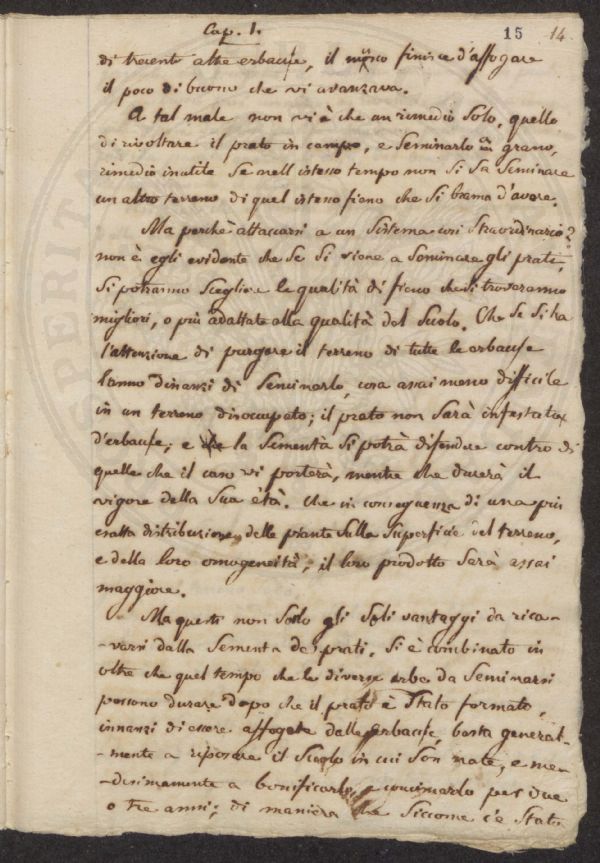 Cap. 1.
15 14
di trecent' altre erbacce, il musco finisce d'affogare
il poco di buono che vi avanzava.
A tal male non vi è che un rimedio solo, quello
di rivoltare il prato in campo, e seminarlo a grano,
rimedio inutile se nell'istesso tempo non si sa seminare
un altro terreno di quel istesso fieno che si brama d'avere.
Ma perchè attaccarsi a un sistema così straordinario?
non è egli evidente che se si viene a seminare gli prati,
si potranno scegliere le qualità di fieno che si troveranno
migliori, o più adattate alla qualità del suolo. Che se si ha
l'attenzione di purgare il terreno di tutte le erbacce
l'anno dinanzi di seminarlo, cosa assai meno difficile
in un terreno disoccupato; il prato non sarà infestato
d'erbacce; e la sementa si potrà difendere contro di
quelle che il caso vi porterà, mentre che durerà il
vigore della sua età. Che in conseguenza di una più
esatta distribuzione delle piante sulla superficie del terreno,
e della loro omogeneità, il loro prodotto sarà assai
maggiore.
Ma questi non sono gli soli vantaggi da rica-
-varsi dalla sementa de' prati. Si è combinato in
oltre che quel tempo che le diverse erbe da seminarsi
possono durare dopo che il prato è stato formato,
innanzi di essere affogate dalle erbacce, basta general-
-mente a riposare il suolo in cui son nate, e me-
-desimamente a bonificarlo, e concimarlo per due
o tre anni; di maniera che siccome c'è stato